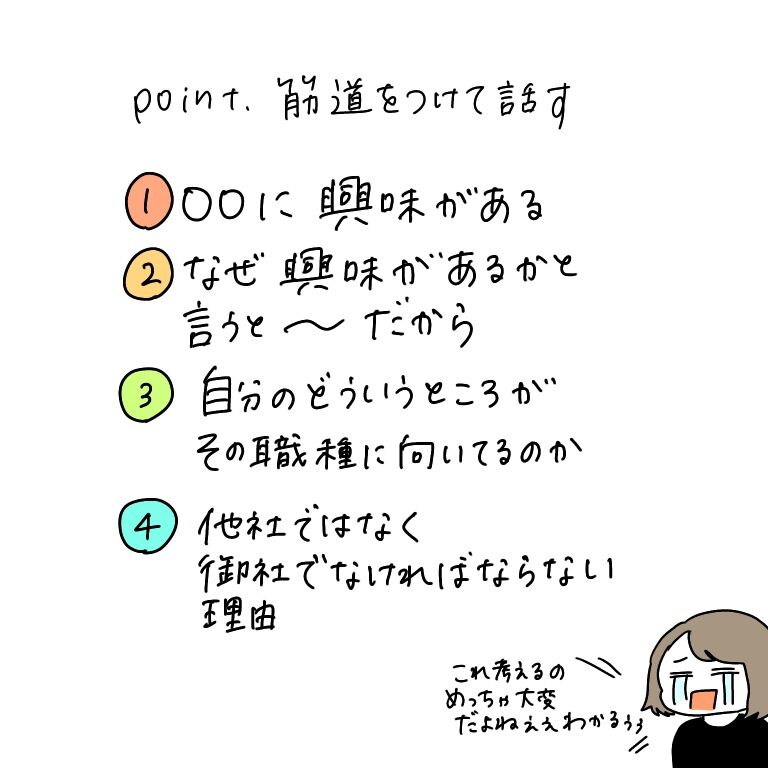 point. 筋道をつけて話す
1 〇〇に興味がある
2 なぜ興味があるかと
言うと 〜 だから
3 自分のどういうところが
その職種に向いてるのか
4 他社ではなく
御社でなければならない
理由
これ考えるの
めっちゃ大変
だよねぇぇわかるぅぅ